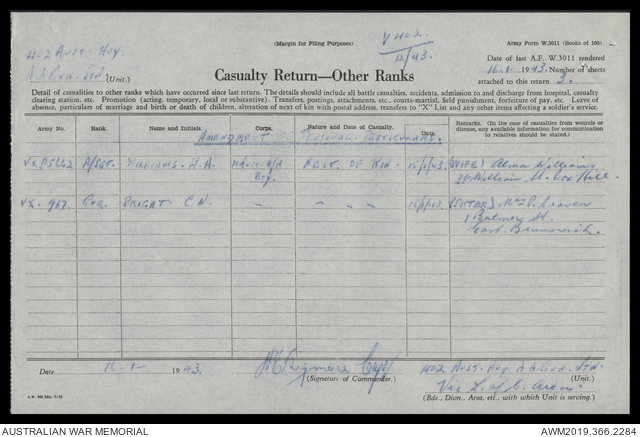 (Margin for Filing Purposes)
V402
12/43.
Army Form W.3011 (Books of 100)
402 Aust. Hvy.
A.A. Gun. Stn (Unit.)
Date of last A.F. W.3011 rendered
16.1. 1943. Number of sheets
attached to this return 3.
Casualty Return—Other Ranks
Detail of casualties to other ranks which have occurred since last return. The details should include all battle casualties, accidents, admission to and discharge from hospital, casualty
clearing station, etc. Promotion (acting, temporary, local or substantive). Transfers, postings, attachments, etc., courts-martial, field punishment, forfeiture of pay, etc. Leave of
absence, particulars of marriage and birth or death of children, alteration of next of kin with postal address, transfers to "X" List and any other items affecting a soldier's service.
Army No. Rank. Name and Initials. Corps. Nature and Date of Casualty. Date. Remarks. (In the case of casualties from wounds or
disease, any available information for communication
to relatives should be stated.)
AMENDMENT PERSONAL PARTICULARS.
A/SGT. WILLIAMS. H.A. NEXT OF KIN. 15/1/43. (WIFE) Alma Williams
Bty. William St. Box Hill.
VX. 967. GNR. BRIGHT. C.N. – – – – 15/1/43 (SISTER) Mrs
1 Balmer St.
East Brunswick.
Date 16-1- 1943.
Capt
(Signature of Commander.)
402 Aust. Hvy. A.A. Gun. Stn.
(Unit.)
Vic L. of C. Area.
(Bde., Divn., Area, etc., with which Unit is serving.)
AUSTRALIAN WAR MEMORIAL
AWM2019.366.2284